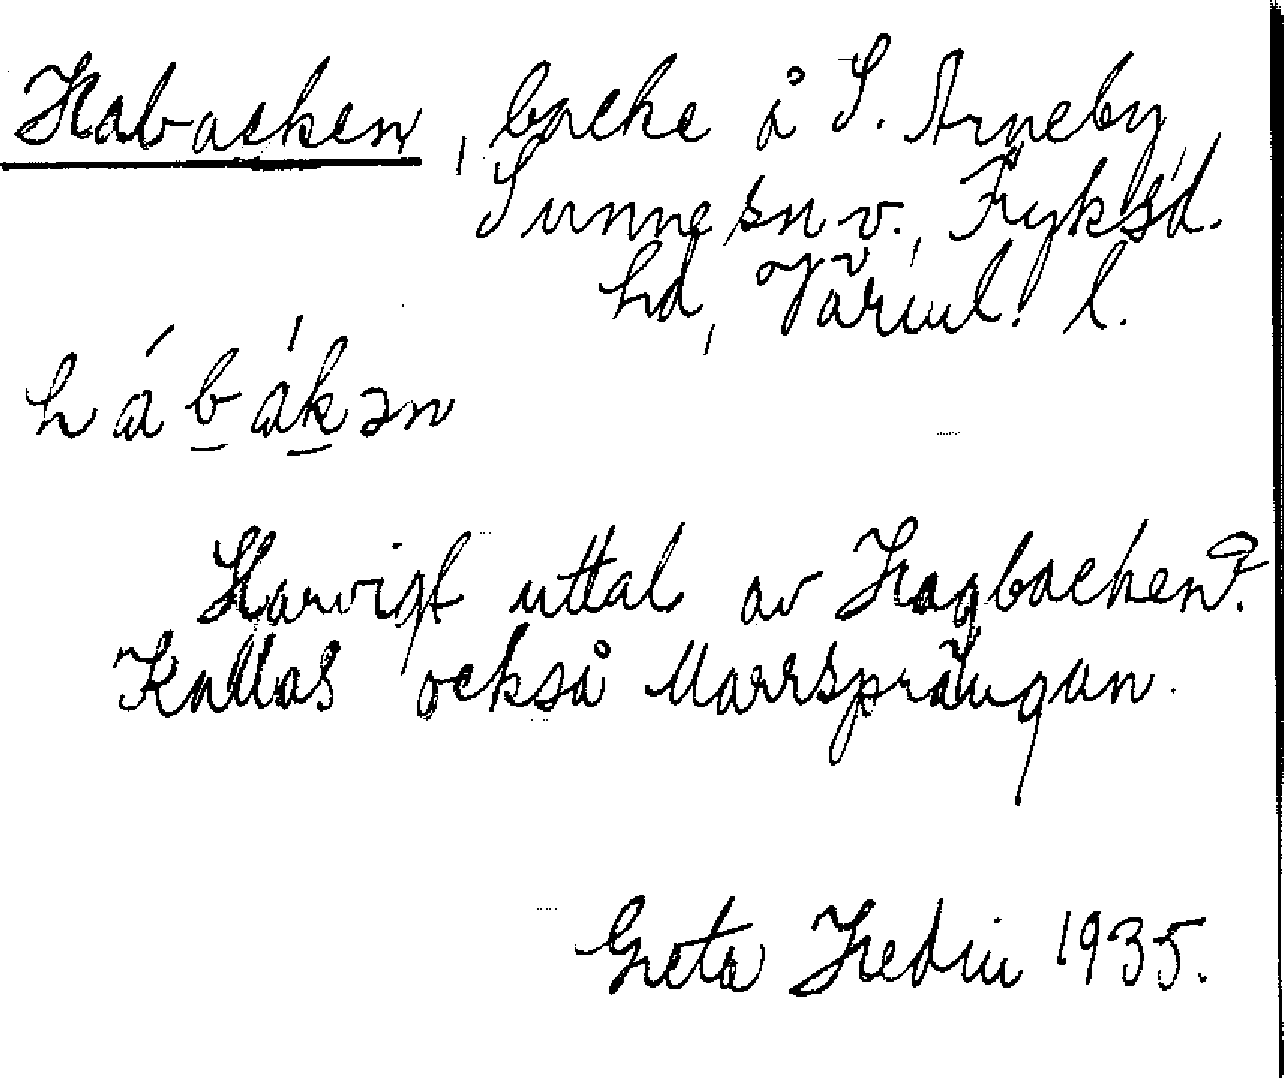 Habacken, backe å S. Arneby,
Sunne sn v., Fryksd.
hd, Värml. l.
hábákən
Slarvigt uttal av Hagbacken?
Kallas också Marrsprängan.
Greta Hedin 1935.